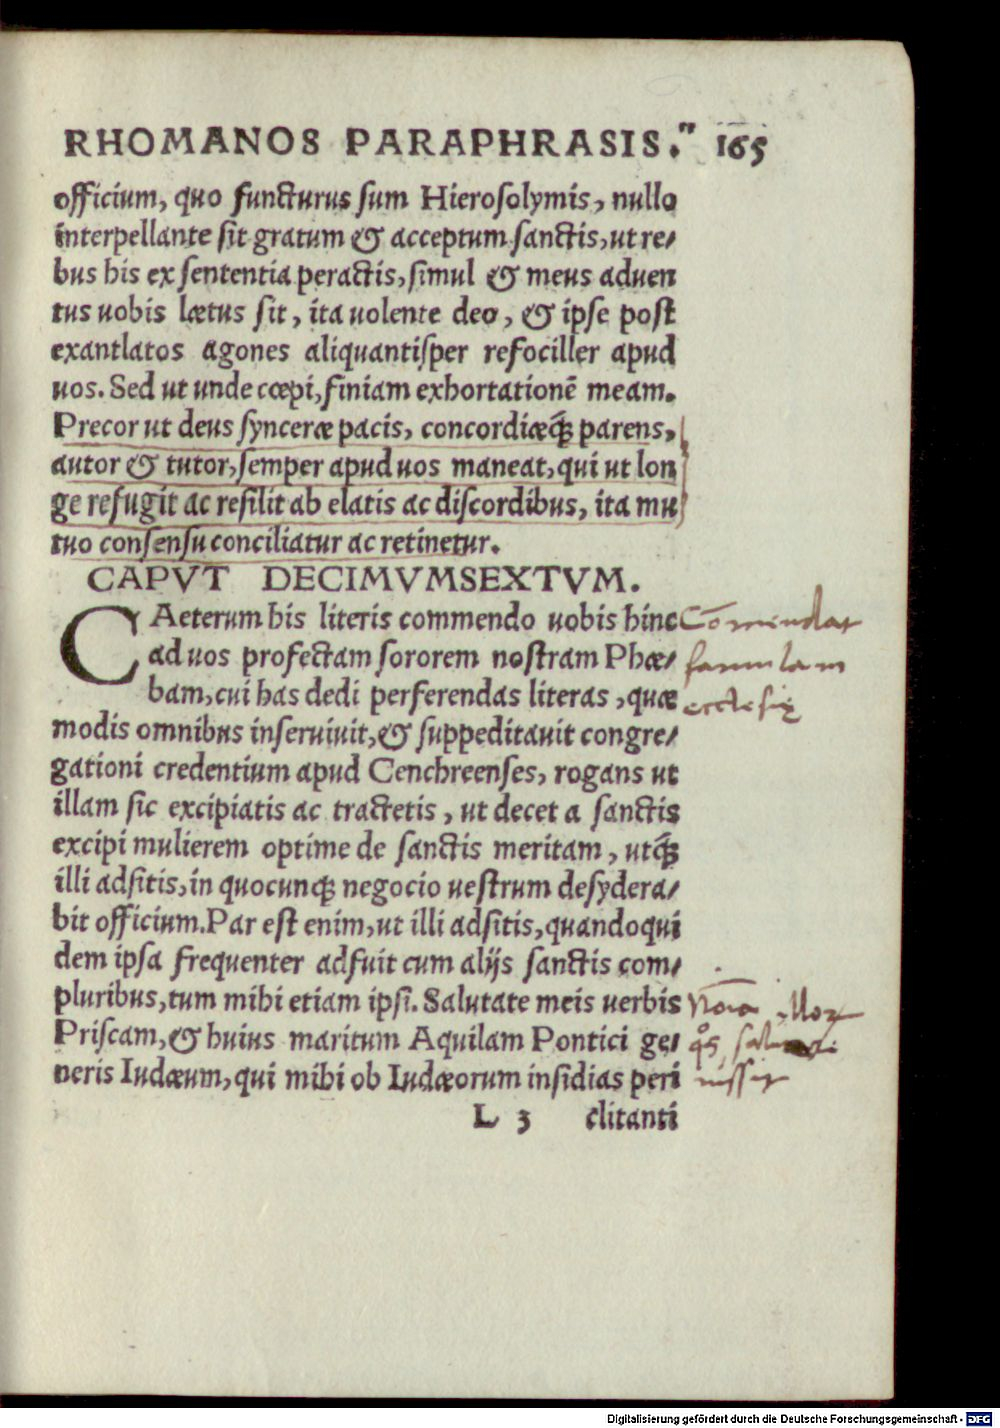 RHOMANOS PARAPHRASIS." 165
officium, quo functurus sum Hierosolymis, nullo
interpellante sit gratum & acceptum sanctis, ut re/
bus his ex sententia peractis, simul & meus aduen
tus uobis lætus sit, ita uolente deo, & ipse post
exantlatos agones aliquantisper refociller apud
uos. Sed ut unde cœpi, finiam exhortationē meam.
Precor ut deus synceræ pacis, concordiæq́; parens,
autor & tutor, semper apud uos maneat, qui ut lon
ge refugit ac resilit ab elatis ac discordibus, ita mu
tuo consensu conciliatur ac retinetur.
CAPVT DECIMVMSEXTVM.
CAeterum his literis commendo uobis hinc
ad uos profectam sororem nostram Phœ/
bam, cui has dedi perferendas literas, quæ
modis omnibus inseruiuit, & suppeditauit congre/
gationi credentium apud Cenchreenses, rogans ut
illam sic excipiatis ac tractetis, ut decet a sanctis
excipi mulierem optime de sanctis meritam, utq́;
illi adsitis, in quocunq; negocio uestrum desydera/
bit officium. Par est enim, ut illi adsitis, quandoqui
dem ipsa frequenter adfuit cum alijs sanctis com/
pluribus, tum mihi etiam ipsi. Salutate meis uerbis
Priscam, & huius maritum Aquilam Pontici ge/
neris Iudæum, qui mihi ob Iudæorum insidias peri
L 3 clitanti
Cōmendat
famulam
ecclesię
Noīa illoꝝ
iussit
Digitalisierung gefördert durch die Deutsche Forschungsgemeinschaft - DFG